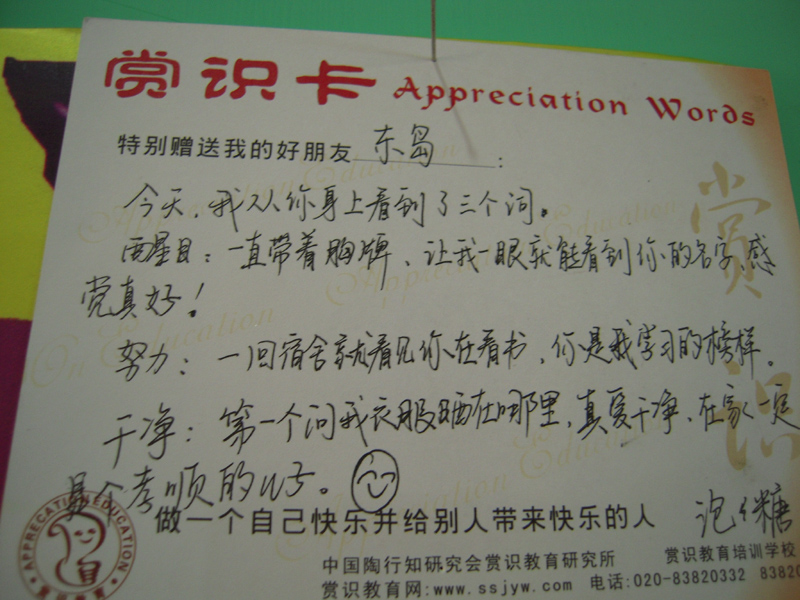 赏识卡 Appreciation Words
特别赠送我的好朋友 东岛 :
今天,我从你身上看到了三个词。
一直带着胸牌、让我一眼就能看到你的名字,感
觉真好!
努力:一回宿舍就看见你在看书,你是我学习的榜样。
干净:第一个问我衣服晒在哪里,真爱干净、在家一定
是个孝顺的好。
做一个自己快乐并给别人带来快乐的人
中国陶行知研究会赏识教育研究所 赏识教育培训学校
赏识教育网:www.ssjyw.com 电话:020-83820332 83820
赏
识
APPRECIATION EDUCATION